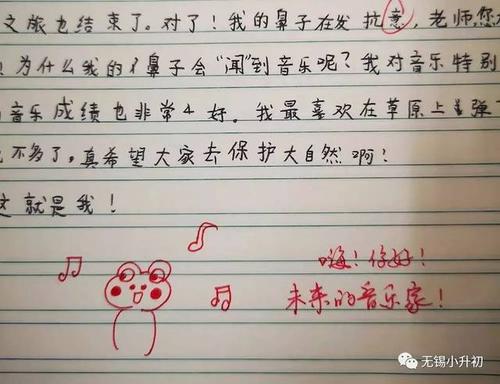 之旅也结束了。对了！我的鼻子在发拉意，老师您
！为什么我的鼻子会“闻”到音乐呢？我对音乐特别
音乐成绩也非常好。我最喜欢在草原上弹
不多了，真希望大家去保护大自然啊！
这就是我！
嗨！你好！
未来的音乐家！
无锡小升初